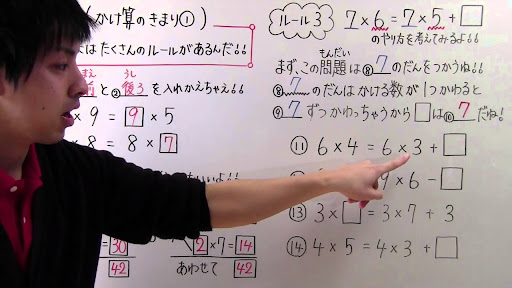 (かけ算のきまり①)
はたくさんのルールがあるんだ!!
まえ うしろ
前と②後ろを入れかえちゃえ!!
×9=9×5
×8=8×7
30
42
2×7=14
あわせて 42
ルール3 7×6=7×5+□
のやり方を考えてみるよ!!
もんだい
まず、この問題は⑧7のだんをつかうね!!
⑧7のだんはかける数が1つかわると
⑨7ずつかわっちゃうから□は⑩7だね!
⑪6×4=6×3+□
×6-□
⑬3×□=3×7+3
⑭4×5=4×3+□